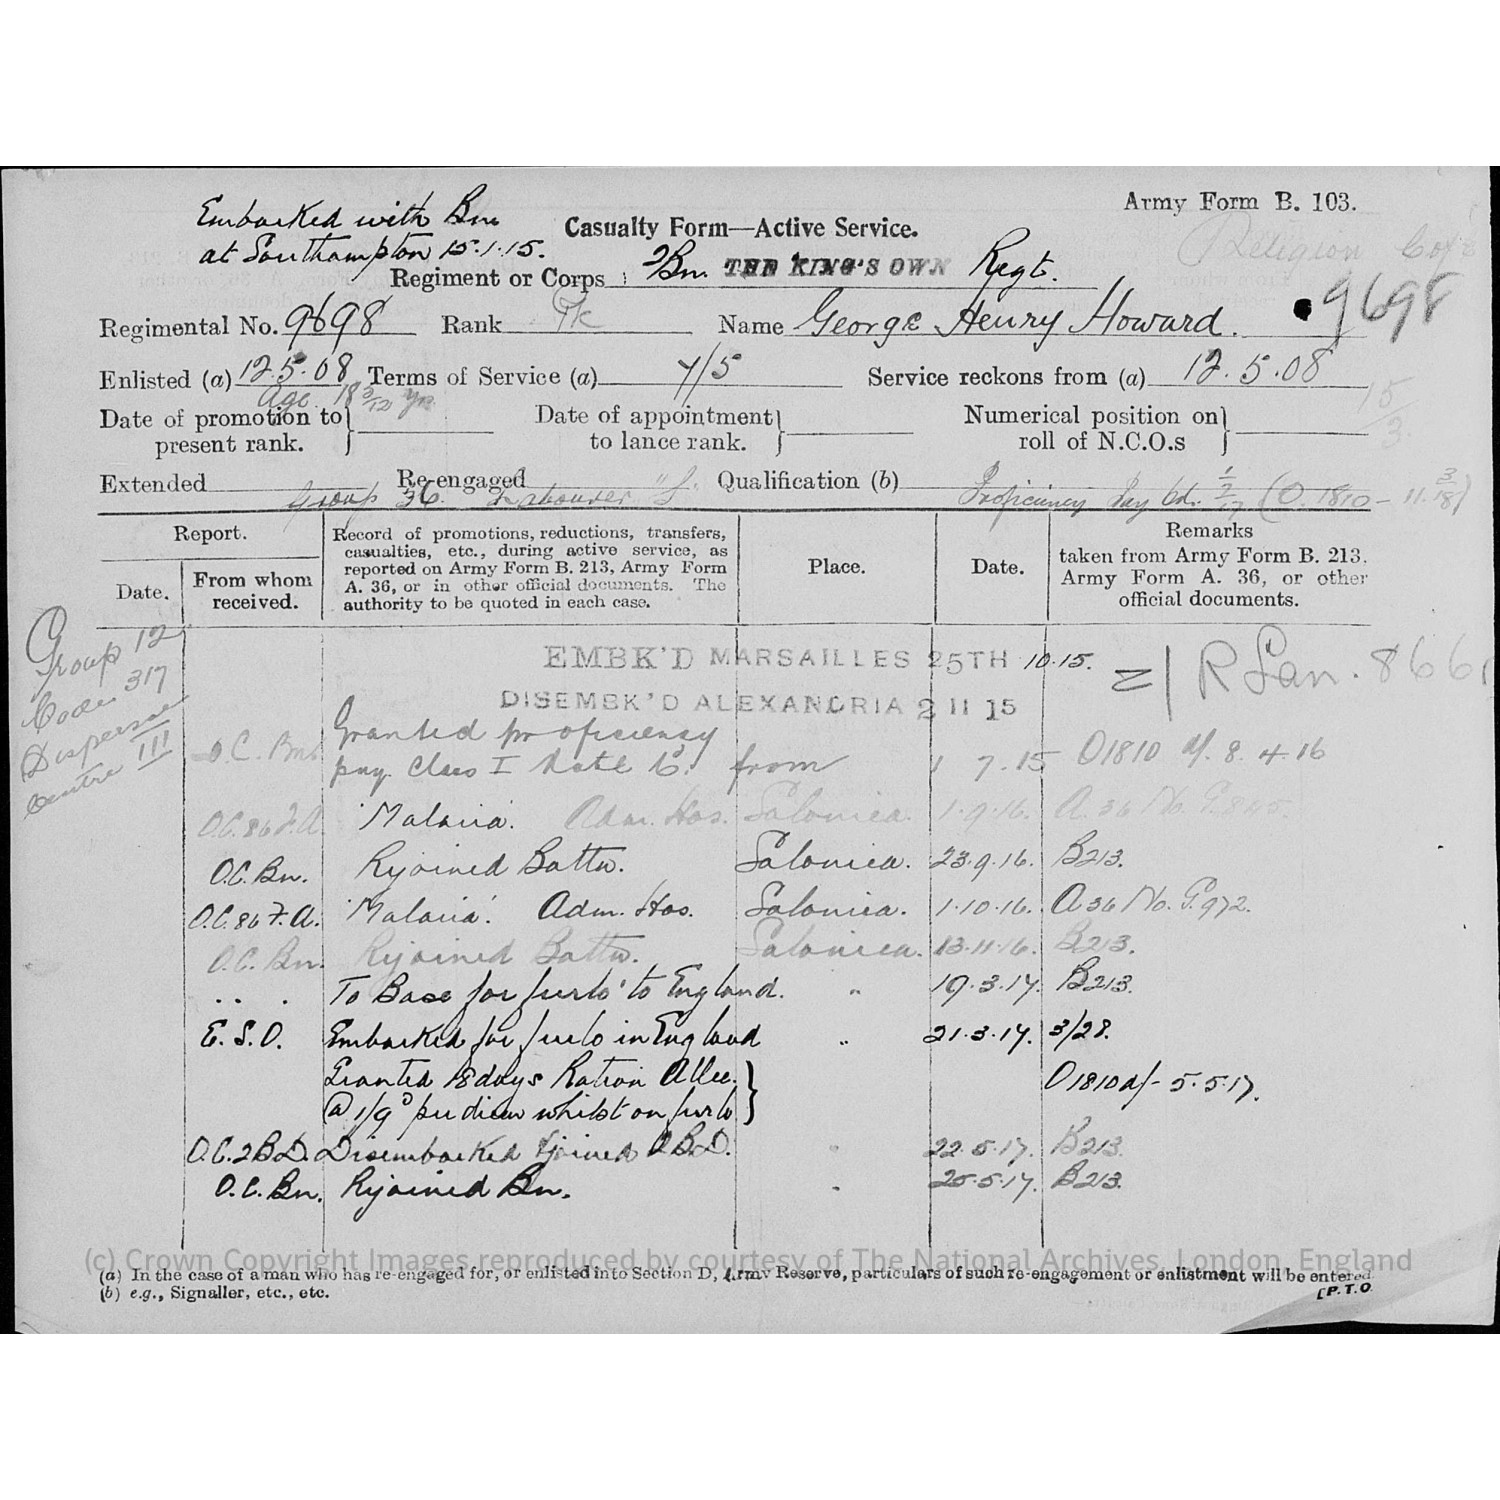 Army Form B. 103.
Embarked with Bn
at Southampton 15.1.15.
Casualty Form—Active Service.
Religion C of E
Regiment or Corps 2/Bn. THE KING'S OWN Regt.
Regimental No. 9698 Rank Pte Name George Henry Howard. 9698
Enlisted (a) 12.5.08 Terms of Service (a) 7/5 Service reckons from (a) 12.5.08
Age 18 3/12 yrs
15/3
Date of promotion to present rank. Date of appointment to lance rank. Numerical position on roll of N.C.O.s
Extended Re-engaged Qualification (b)
Group 36. Labourer Proficiency Pay (O. 1810 -
Report.
Date. From whom received.
Record of promotions, reductions, transfers, casualties, etc., during active service, as reported on Army Form B. 213, Army Form A. 36, or in other official documents. The authority to be quoted in each case.
Place.
Date.
Remarks taken from Army Form B. 213, Army Form A. 36, or other official documents.
Group 12
Code 317
Dispersal
Centre III
EMBK'D MARSAILLES 25TH 10.15.
R Lan. 866
DISEMBK'D ALEXANDRIA 2 11 15
O.C. Bn Granted proficiency
pay Class I Rate 6d. from 1 7.15 O1810 d/. 8.4.16
O.C. 86 F.A. 'Malaria'. Adm. Hos. Salonica. 1.9.16. A.36 No. P.845.
O.C. Bn. Rejoined Battn. Salonica. 23.9.16. B213.
O.C. 86 F.A. 'Malaria'. Adm. Hos. Salonica. 1.10.16. A36 No. P.972.
O.C. Bn. Rejoined Battn. Salonica. 13.11.16. B213.
.. . To Base for furlo' to England. " 19.3.17. B213.
E.S.O. Embarked for furlo in England " 21.3.17. 3/28.
Granted 18 days Ration Allce.
@ 1/9d per diem whilst on furlo O1810 d/- 5.5.17.
O.C. 2 B.D. Disembarked & joined B.D. " 22.5.17. B213.
O.C. Bn. Rejoined Bn. " 25.5.17. B213.
(c) Crown Copyright Images reproduced by courtesy of The National Archives, London, England
(a) In the case of a man who has re-engaged for, or enlisted into Section D, Army Reserve, particulars of such re-engagement or enlistment will be entered.
(b) e.g., Signaller, etc., etc.
[P.T.O.